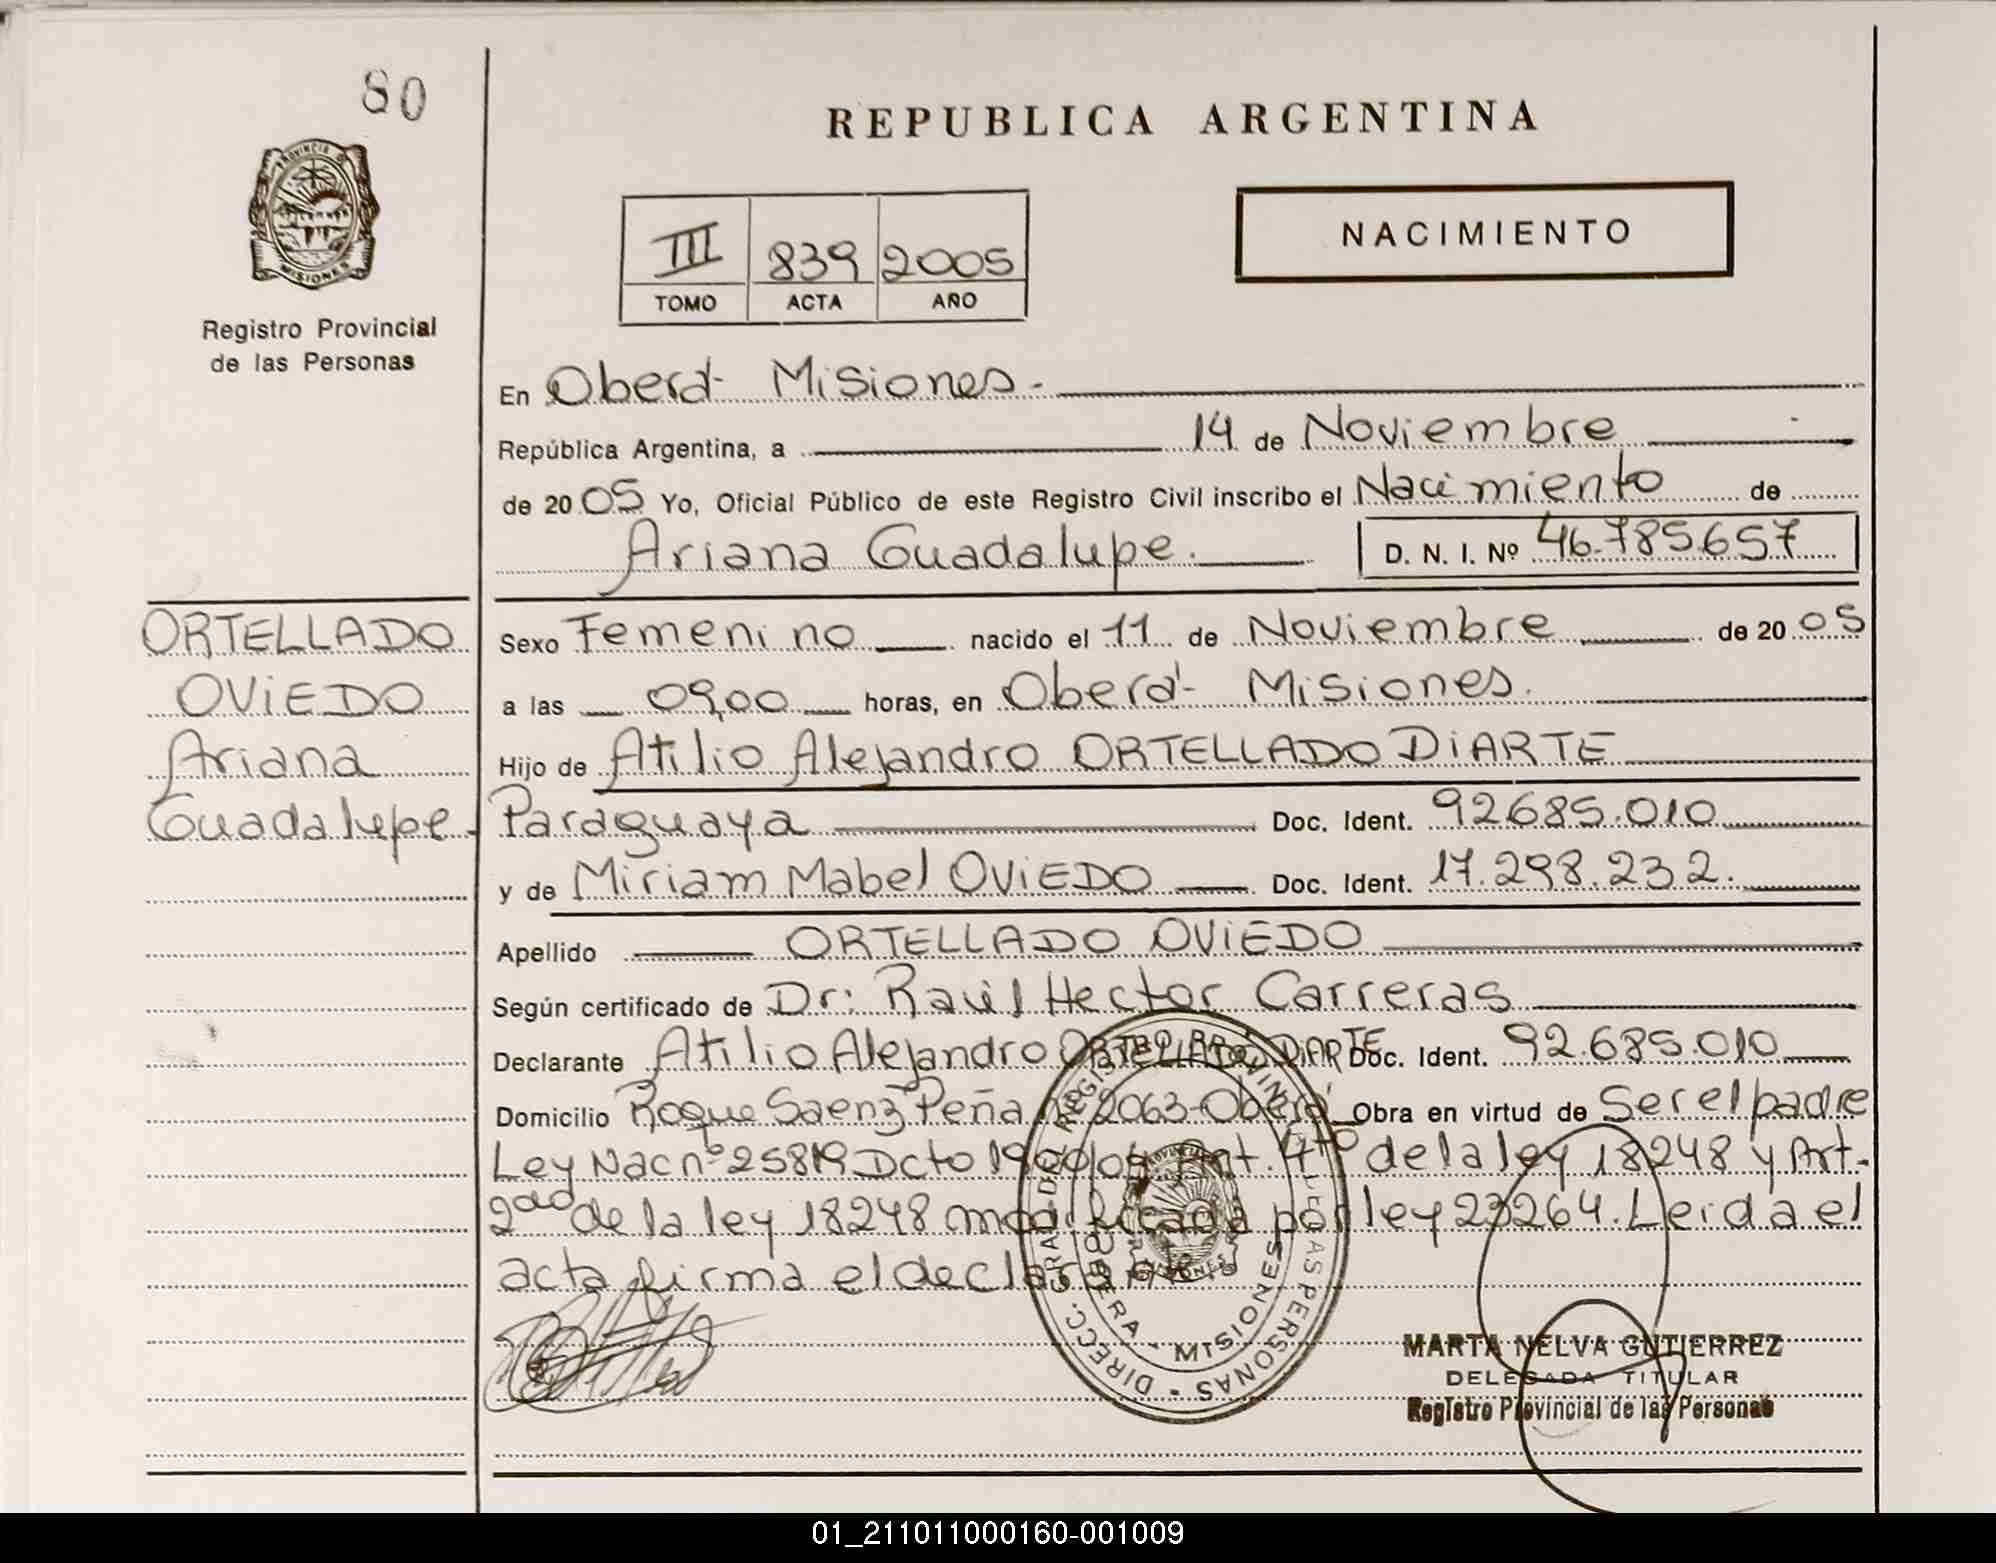 80
REPUBLICA ARGENTINA
PROVINCIA DE
MISIONES
Registro Provincial
de las Personas
III 839 2005
TOMO ACTA AÑO
NACIMIENTO
En Oberá - Misiones.-
República Argentina, a 14 de Noviembre
de 2005 Yo, Oficial Público de este Registro Civil inscribo el Nacimiento de
Ariana Guadalupe. D. N. I. Nº 46.785.657
ORTELLADO
OVIEDO
Ariana
Guadalupe.-
Sexo Femenino nacido el 11 de Noviembre de 2005
a las 09,00 horas, en Oberá - Misiones.
Hijo de Atilio Alejandro ORTELLADO DIARTE
Paraguaya Doc. Ident. 92685.010
y de Miriam Mabel OVIEDO Doc. Ident. 17.298.232.
Apellido ORTELLADO OVIEDO
Según certificado de Dr: Raúl Hector Carreras
Declarante Atilio Alejandro ORTELLADO DIARTE Doc. Ident. 92.685.010
Domicilio Roque Saenz Peña nº 2063-Oberá Obra en virtud de Ser el padre
Ley Nac nº 25819 Dcto Art. 4to de la ley 18248 y Art.
2do de la ley 18248 modificada por ley 23264. Leida el
acta firma el declarante
DIRECC. GRAL. DEL REGISTRO PROVINCIAL DE LAS PERSONAS
OBERA - MISIONES
MARTA NELVA GUTIERREZ
DELEGADA TITULAR
Registro Provincial de las Personas
01_211011000160-001009